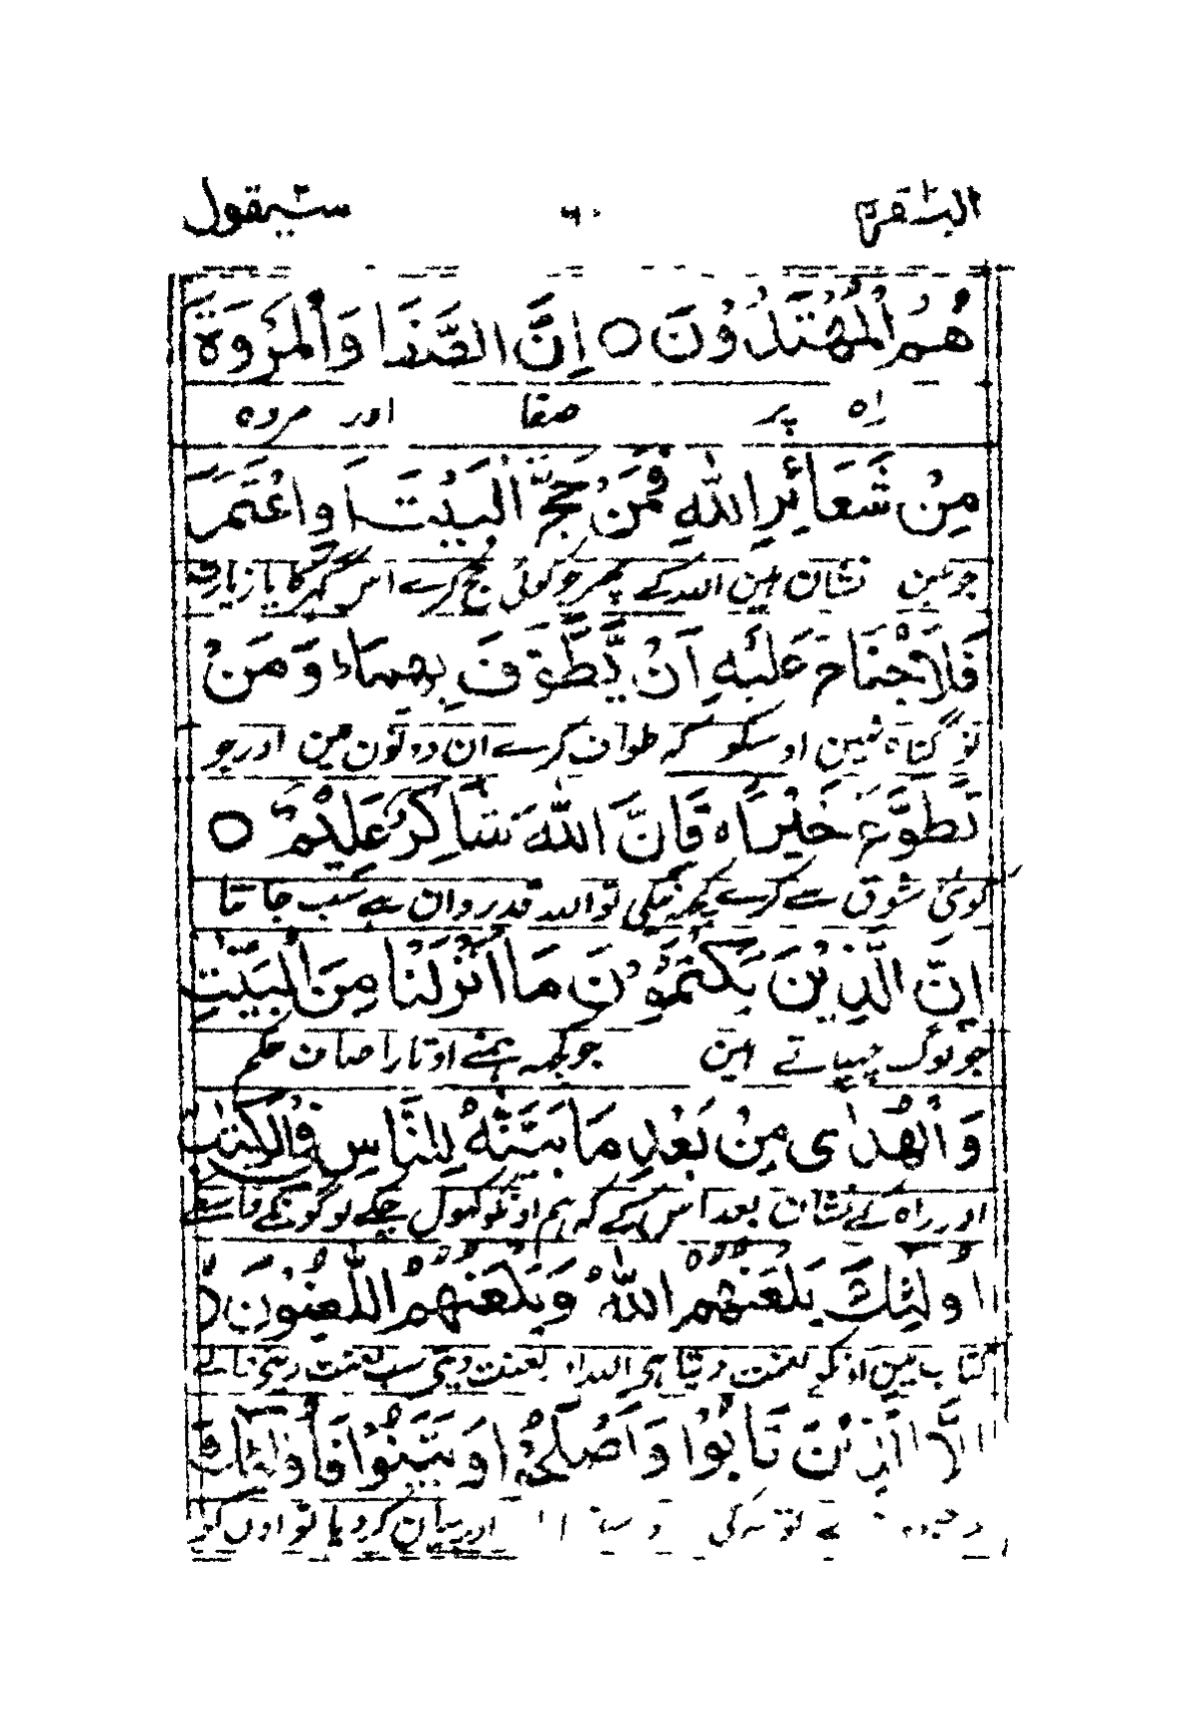 البقرة ٦٠ سيقول
هُمُ الْمُهْتَدُوْنَ ○ اِنَّ الصَّفَا وَالْمَرْوَةَ
راه پر صفا اور مروه
مِنْ شَعَائِرِ اللّٰهِ فَمَنْ حَجَّ الْبَيْتَ اَوِاعْتَمَرَ
جو ہین نشان ہین اللہ کے پھر جو کوئی حج کرے اس گھر کا یا زیارت
فَلَاجُنَاحَ عَلَيْهِ اَنْ يَّطَّوَّفَ بِهِمَاء وَمَنْ
تو گناہ نہین اوسکو کہ طواف کرے ان دونون مین اور جو
تَطَوَّعَ خَيْرًاہ فَاِنَّ اللّٰهَ شَاكِرٌ عَلِيْمٌ ○
کوئی شوق سے کرے کچھ نیکی تو اللہ قدردان ہے سب جانتا
اِنَّ الَّذِيْنَ يَكْتُمُوْنَ مَا اَنْزَلْنَا مِنَ الْبَيِّنٰتِ
جو لوگ چھپاتے ہین جو کچھ ہمنے اوتارا صاف حکم
وَالْهُدٰى مِنْ بَعْدِ مَا بَيَّنّٰهُ لِلنَّاسِ فِى الْكِتٰبِ
اور راہ کے نشان بعد اس کے کہ ہم اونکو کھول چکے لوگونکے واسطے
اُولٰئِكَ يَلْعَنُهُمُ اللّٰهُ وَيَلْعَنُهُمُ اللّٰعِنُوْنَ
کتاب مین اونکو لعنت دیتا ہی اللہ اور لعنت دیتے سب لعنت دینے والے
اِلَّا الَّذِيْنَ تَابُوْا وَاَصْلَحُوْا وَبَيَّنُوْا فَاُولٰئِكَ
توبہ کی اور بیان کر دیا تو اونکو